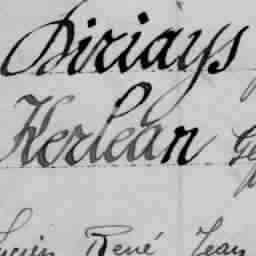 Diriays
Kerlean
Lucien René Jean